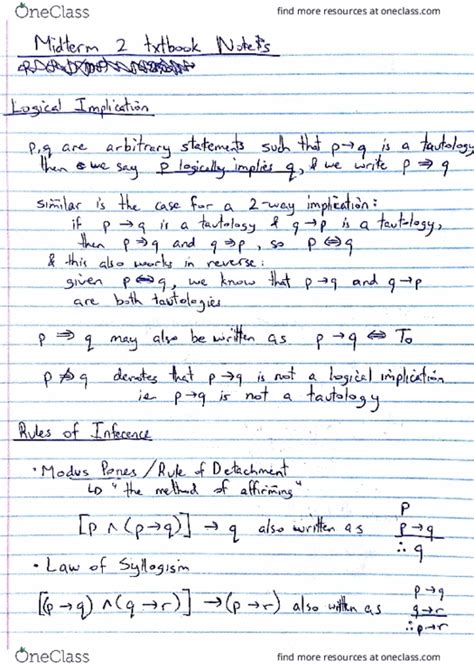 OneClass find more resources at oneclass.com
Midterm 2 txtbook Notes
Logical Implication
p,q are arbitrary statements such that p→q is a tautology
then we say p logically implies q, & we write p ⇒ q
similar is the case for a 2-way implication:
if p→q is a tautology & q→p is a tautology,
then p⇒q and q⇒p, so p⇔q
& this also works in reverse:
given p⇔q, we know that p→q and q→p
are both tautologies
p ⇒ q may also be written as p→q ⇔ T₀
p ⇏ q denotes that p→q is not a logical implication
ie p→q is not a tautology
Rules of Inference
• Modus Pones / Rule of Detachment
↳ "the method of affirming"
p
[p ∧ (p→q)] → q also written as p→q
∴ q
• Law of Syllogism
p→q
[(p→q) ∧ (q→r)] → (p→r) also written as q→r
∴ p→r
OneClass find more resources at oneclass.com